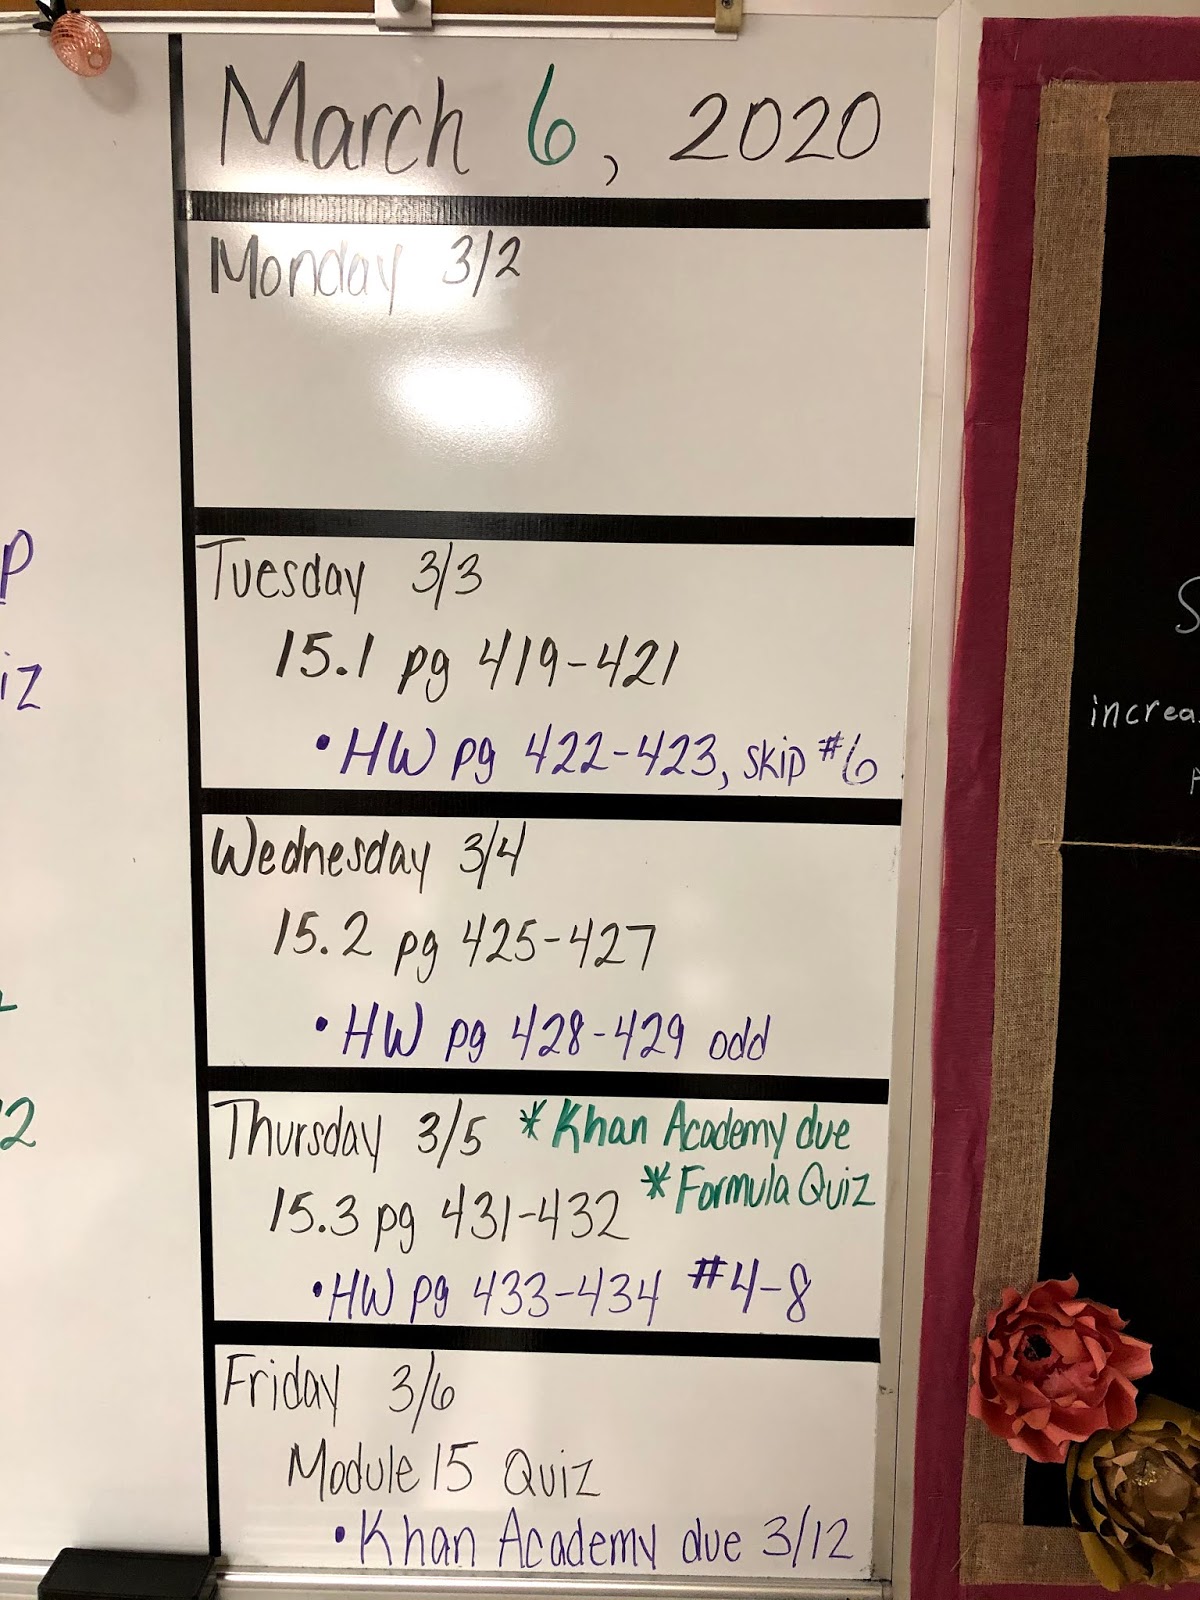 March 6, 2020
Monday 3/2
Tuesday 3/3
15.1 pg 419-421
• HW pg 422-423, skip #6
Wednesday 3/4
15.2 pg 425-427
• HW pg 428-429 odd
Thursday 3/5 * Khan Academy due
* Formula Quiz
15.3 pg 431-432
• HW pg 433-434 #4-8
Friday 3/6
Module 15 Quiz
• Khan Academy due 3/12
P
iz
2
S
increa